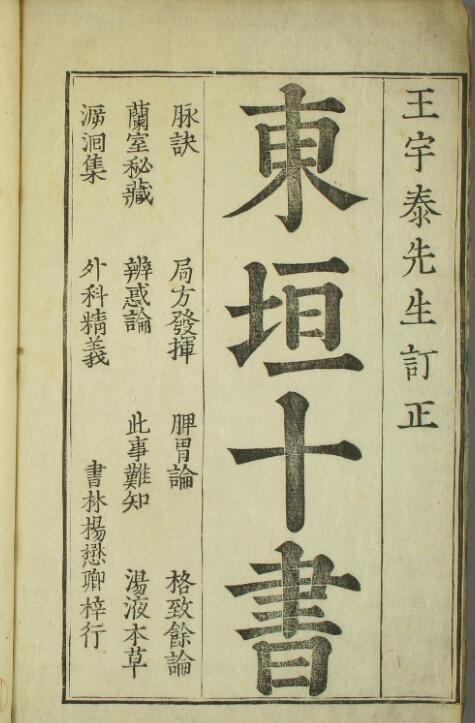 王宇泰先生訂正
東垣十書
脉訣 局方發揮 脾胃論 格致餘論
蘭室秘藏 辨惑論 此事難知 湯液本草
溯洄集 外科精義 書林楊懋卿梓行